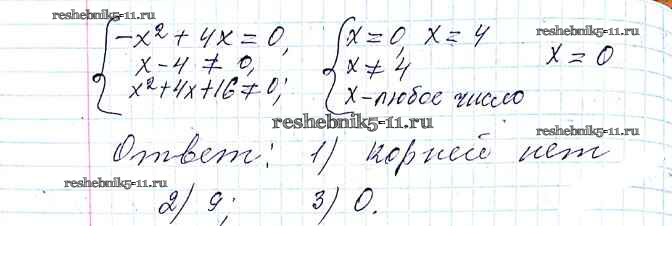 reshebnik5-11.ru
{-x² + 4x = 0, {x = 0, x = 4
x - 4 ≠ 0, x ≠ 4 x = 0
x² + 4x + 16 ≠ 0; x - любое число
reshebnik5-11.ru
reshebnik5-11.ru
reshebnik5-11.ru
Ответ: 1) корней нет
reshebnik5-11.ru
2) 9; 3) 0.